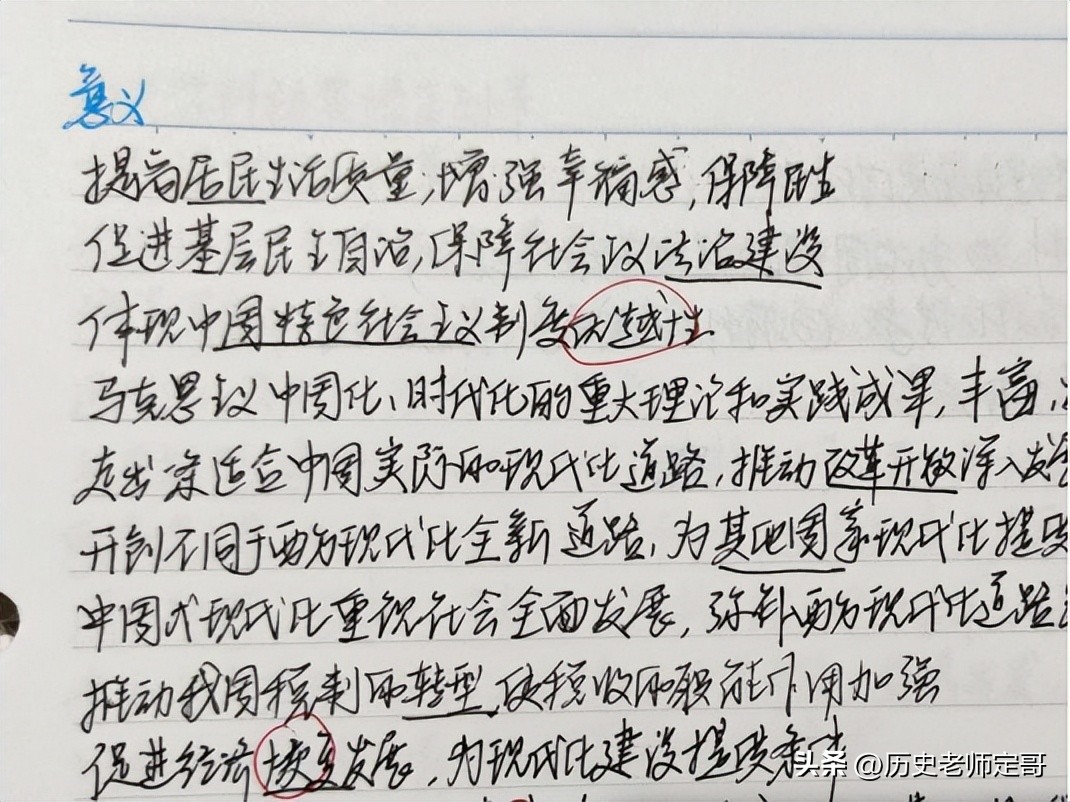 意义
提高居民生活质量,增强幸福感,保障民生
促进基层民主自治,保障社会政法治建设
体现中国特色社会主义制度优越性
马克思主义中国化、时代化的重大理论和实践成果,丰富
走出条适合中国实际的现代化道路,推动改革开放深入发
开创不同于西方现代化全新道路,为其他国家现代化提
中国式现代化重视社会全面发展,弥补西方现代化道路
推动我国税制的转型,使税收的职能作用加强
促进经济恢复发展,为现代化建设提供条件
头条 @历史老师定哥